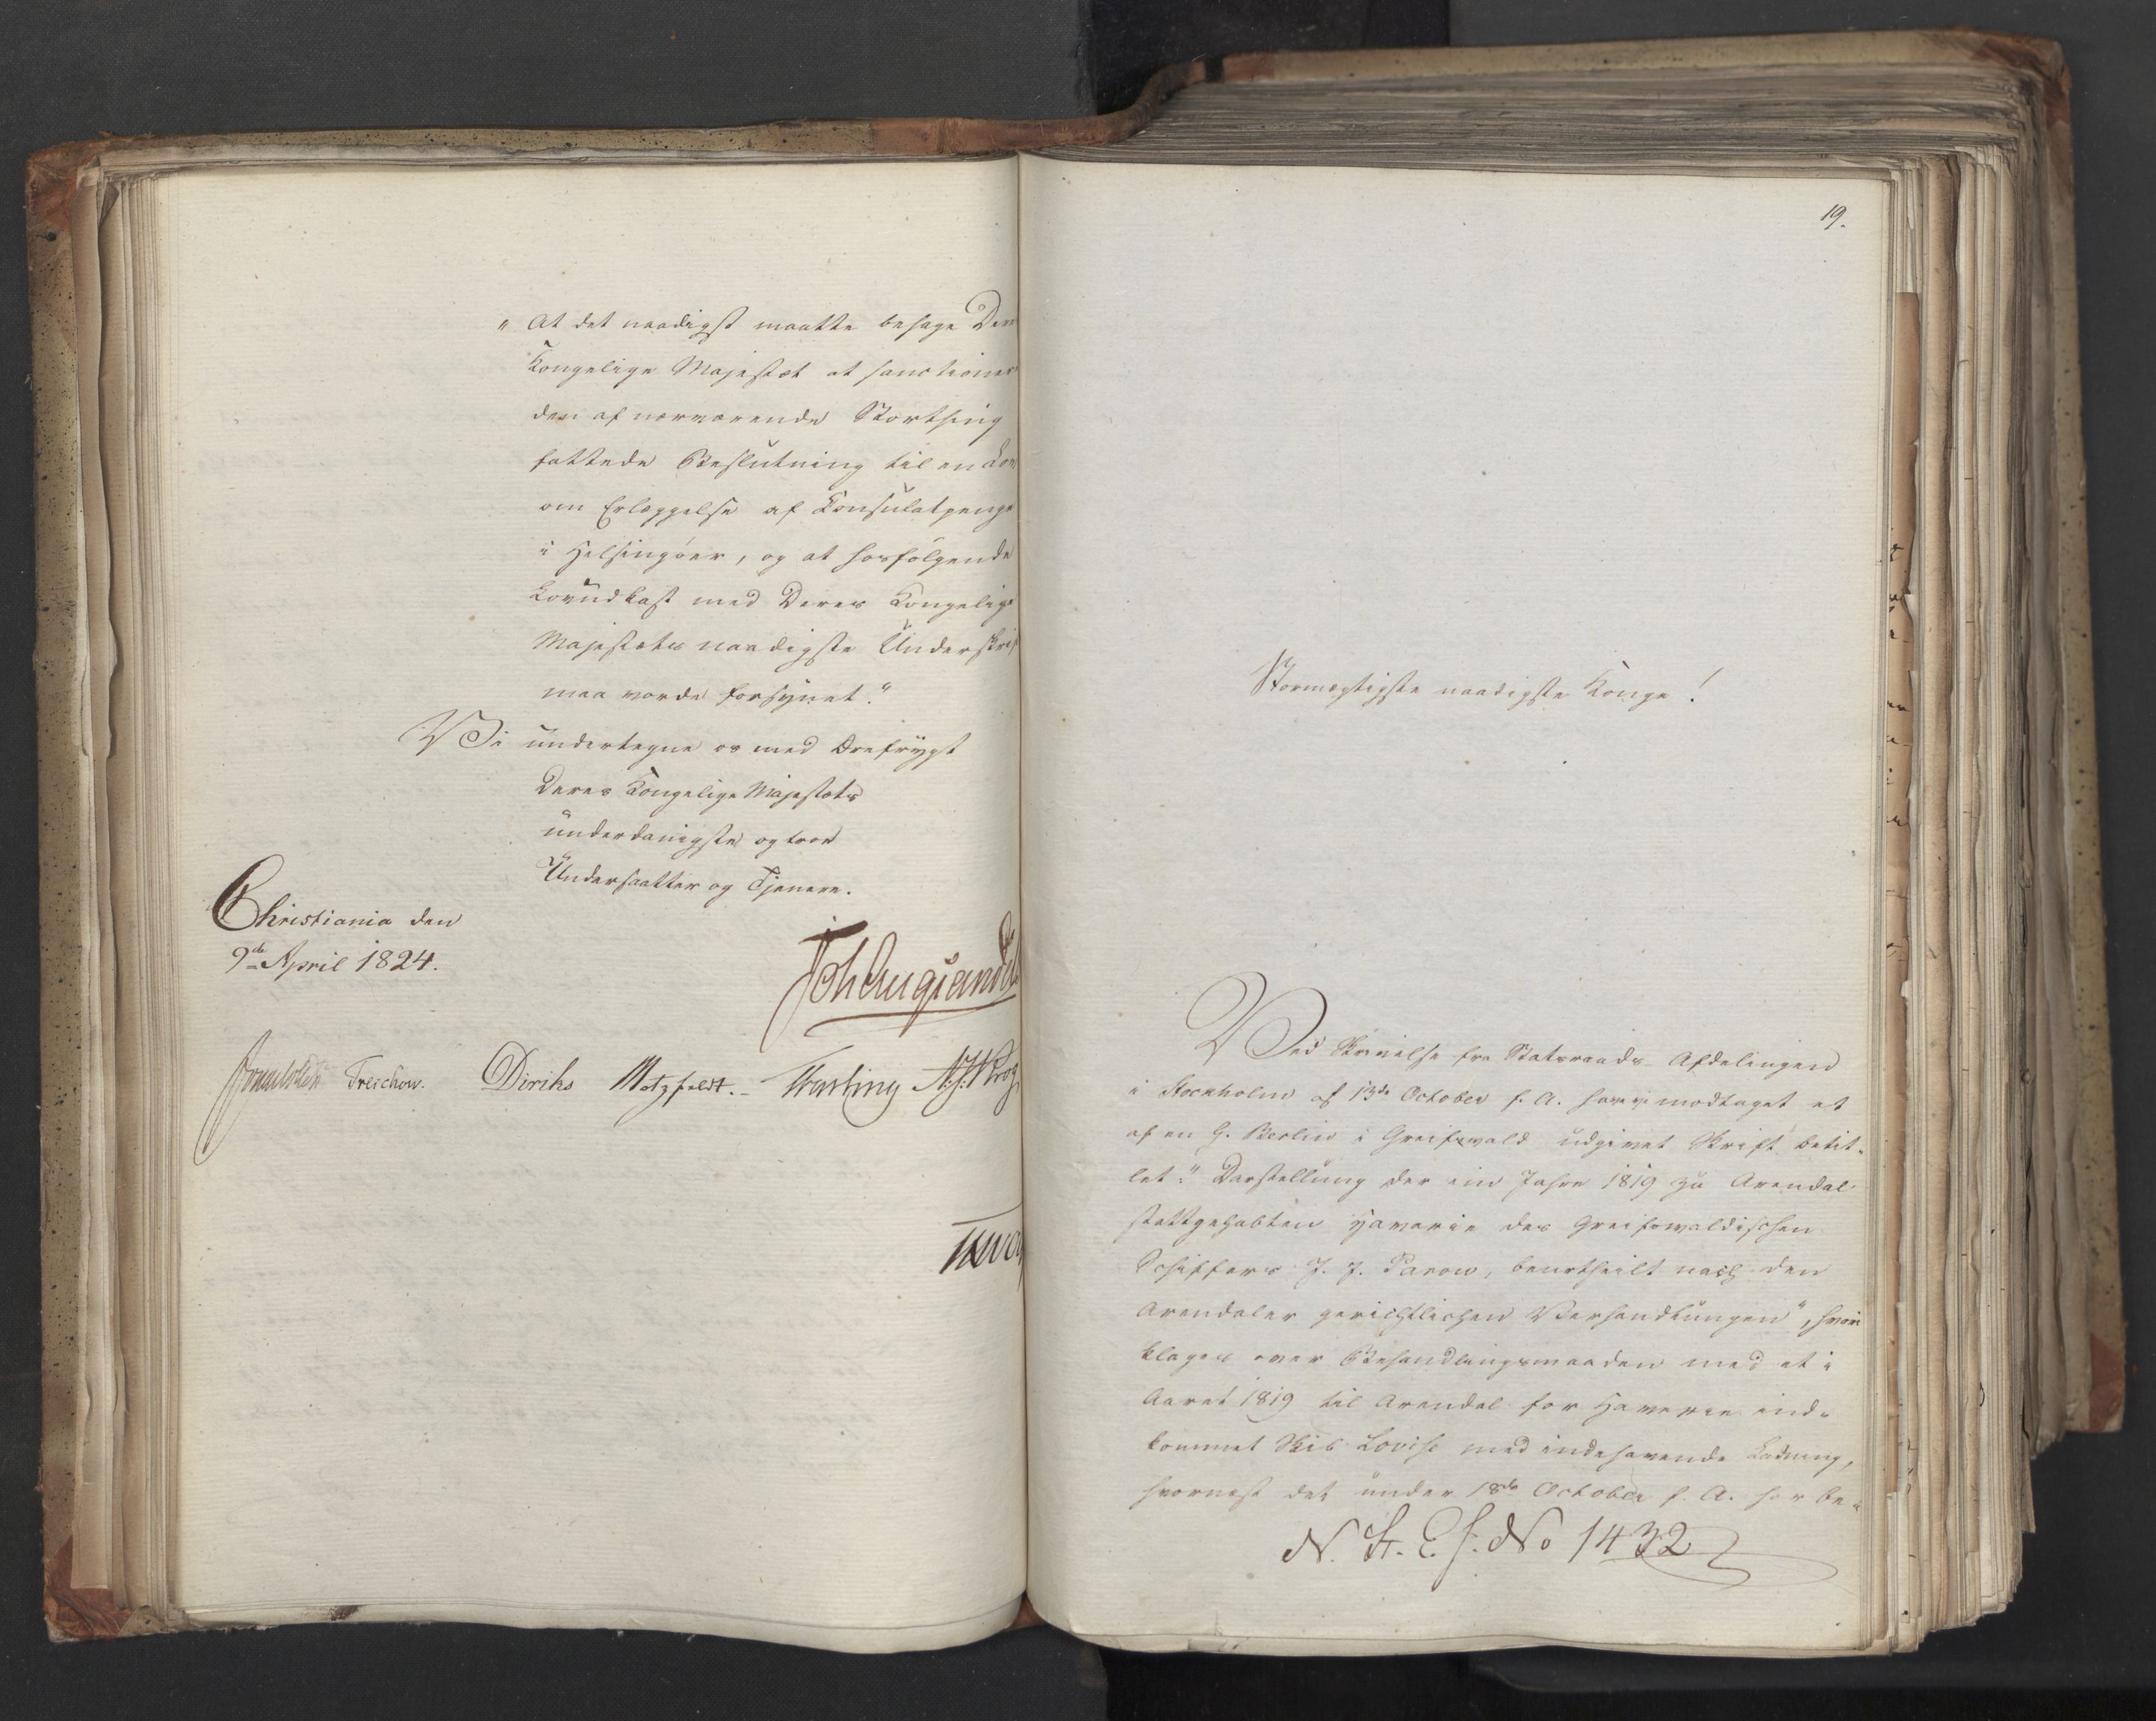 „At det naadigst maatte behage Deres
Kongelige Majestæt at sanctionere
den af nærværende Storthing
fattede Beslutning til en Lov
om Erlæggelse af Consulatpenge
i Helsingöer, og at hosfølgende
Lovudkast med Deres Kongelige
Majestæts naadigste Underskrift
maa vorde forsynet."
Vi undertegne os med Ærefrygt
Deres Kongelige Majestæts
underdanigste og troe
Undersaatter og Tjenere.
Christiania den
9de April 1824.
Joh Aug Sandels
Sommerhielm Treschow. Diriks Motzfeldt. Fasting
19.
Stormægtigste naadigste Konge!
Ved Skrivelse fra Statsraads Afdelingen
i Stockholm af 13de October f. A. have vi modtaget et
af en G. Berlin i Greifswald udgivet Skrift betit-
let: „Darstellung der im Jahre 1819 zu Arendal
stattgehabten Havarie des Greifswaldischen
Schiffers J. J. Parow, beurtheilt nach den
Arendaler gerichtlichen Verhandlungen", hvori
klages over Behandlingsmaaden med et i
Aaret 1819 til Arendal for Haverie ind-
kommet Skib Lovise med indehavende Ladning,
hvornæst det under 18de October f. A. har be-
N. St. E. f. No 1432